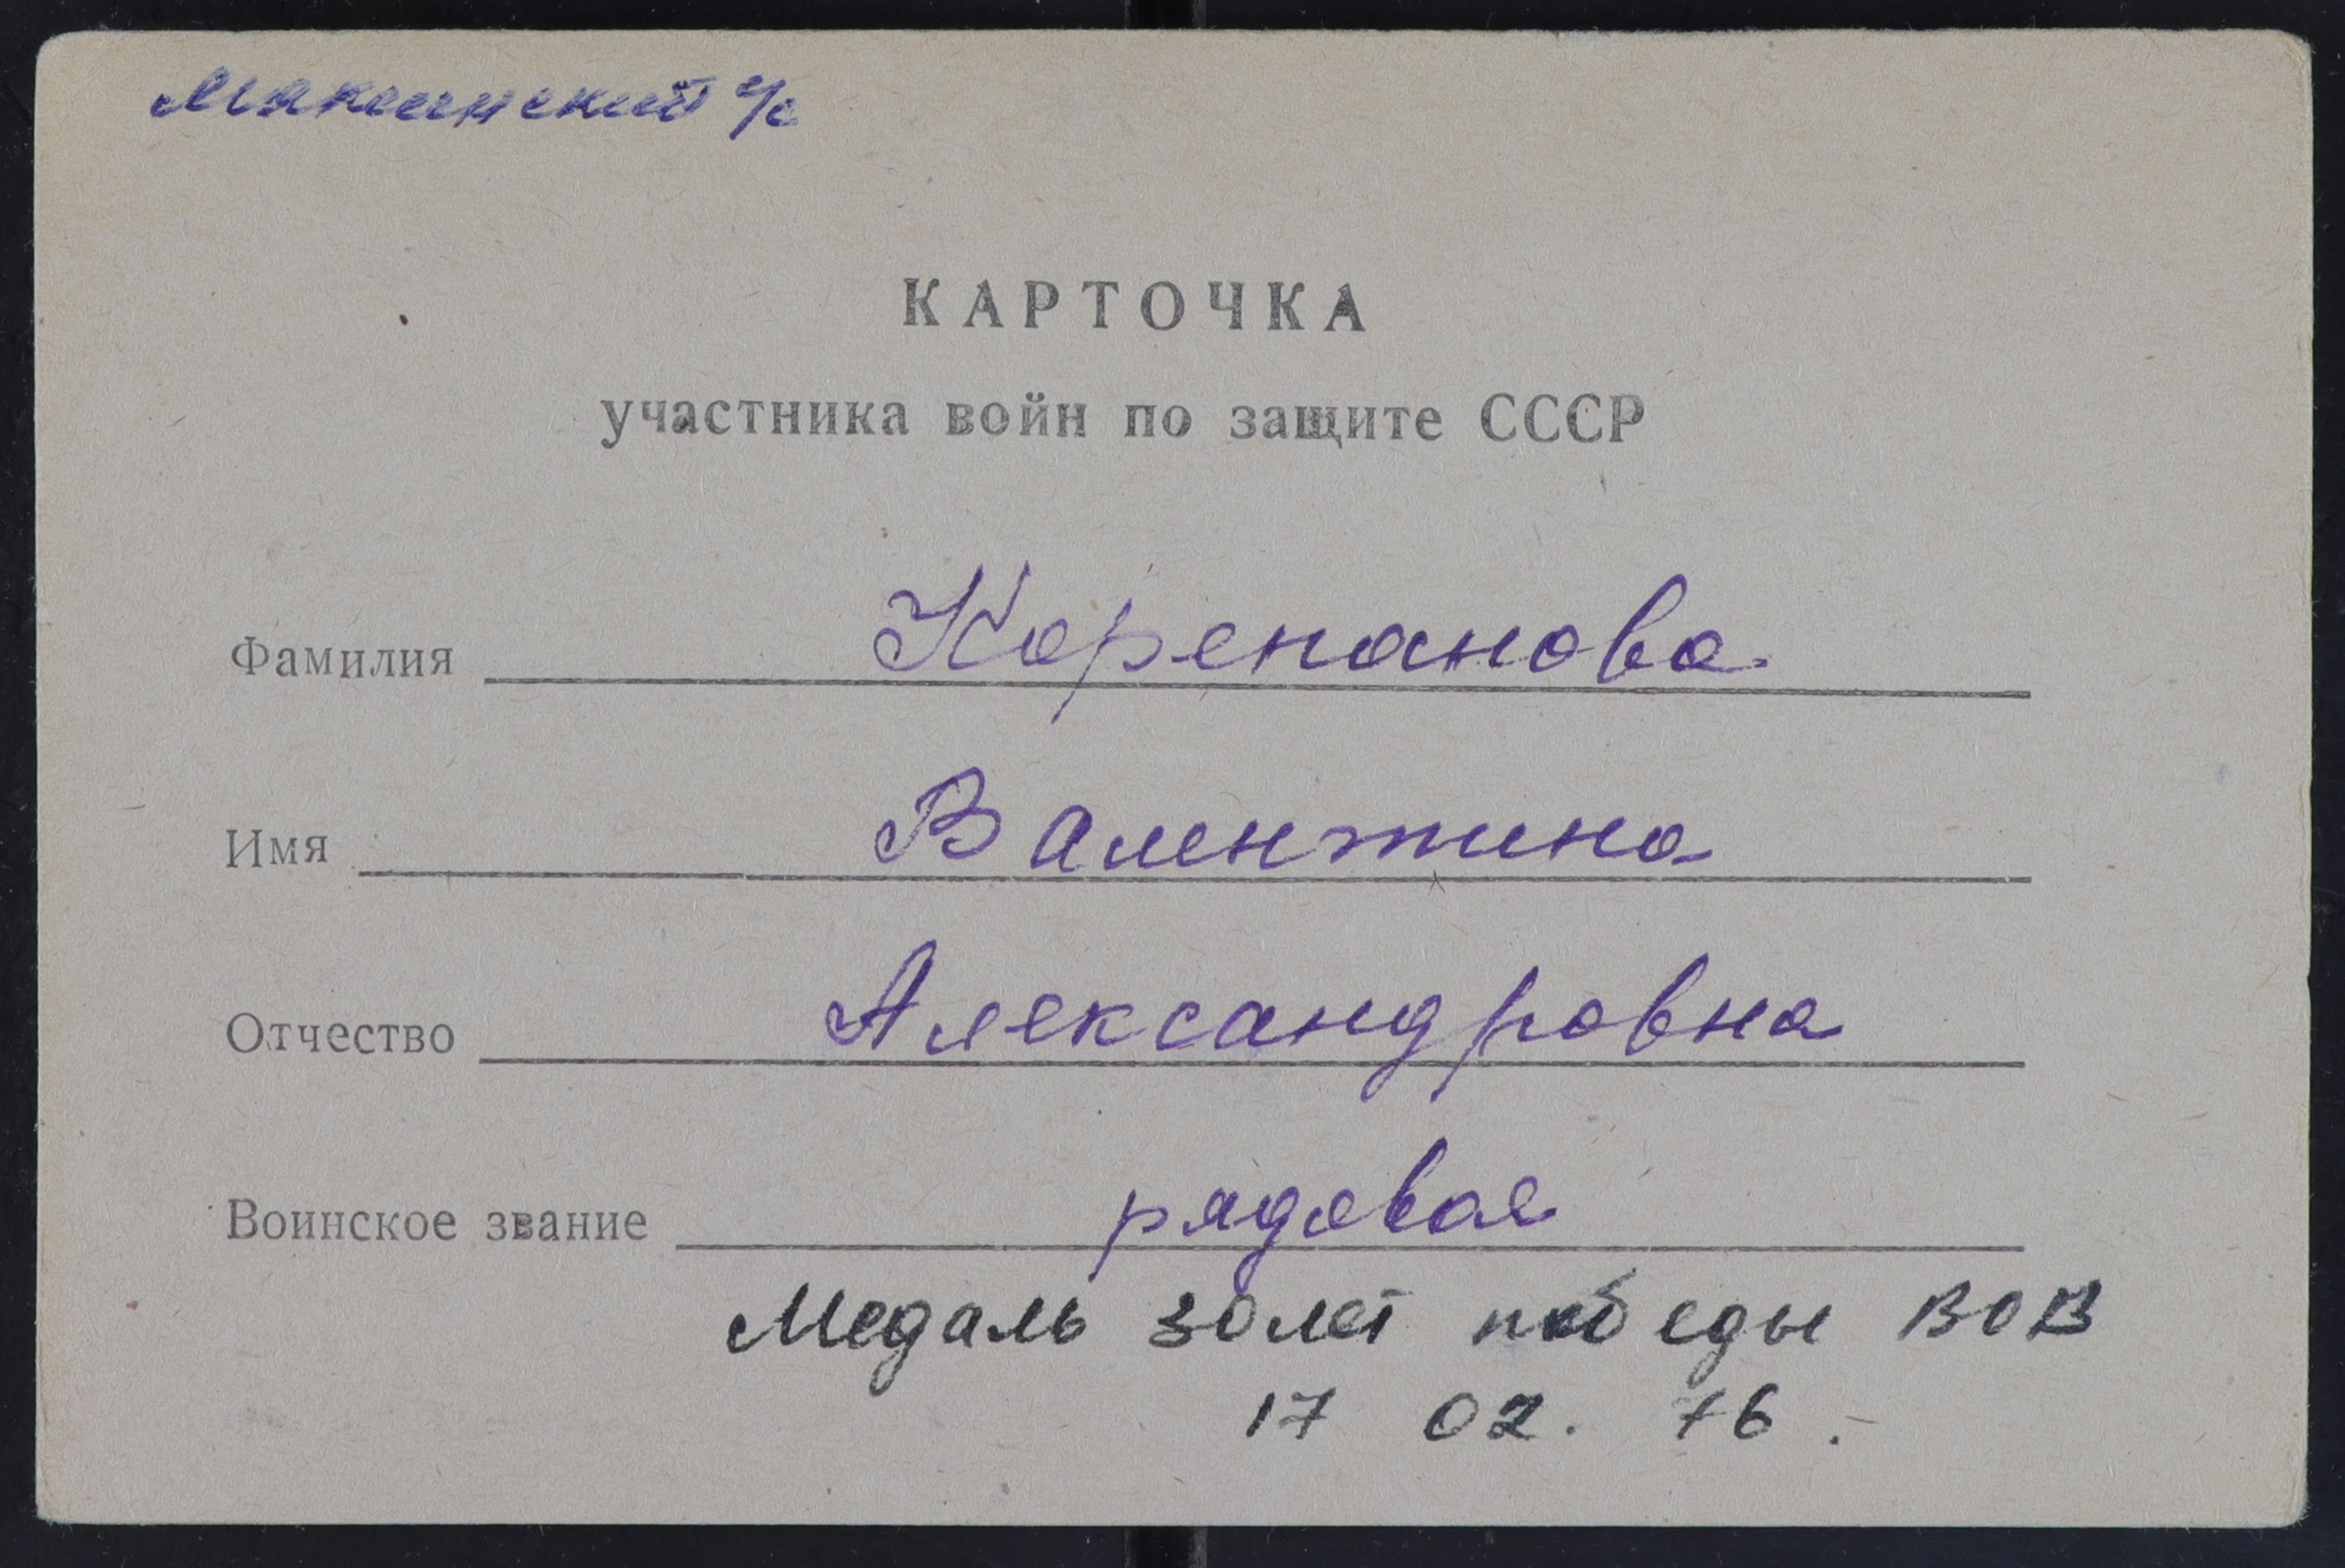 Мякишинский с/с
КАРТОЧКА
участника войн по защите СССР
Фамилия Корепанова
Имя Валентина
Отчество Александровна
Воинское звание рядовая
Медаль 30 лет победы ВОВ
17 02. 76.